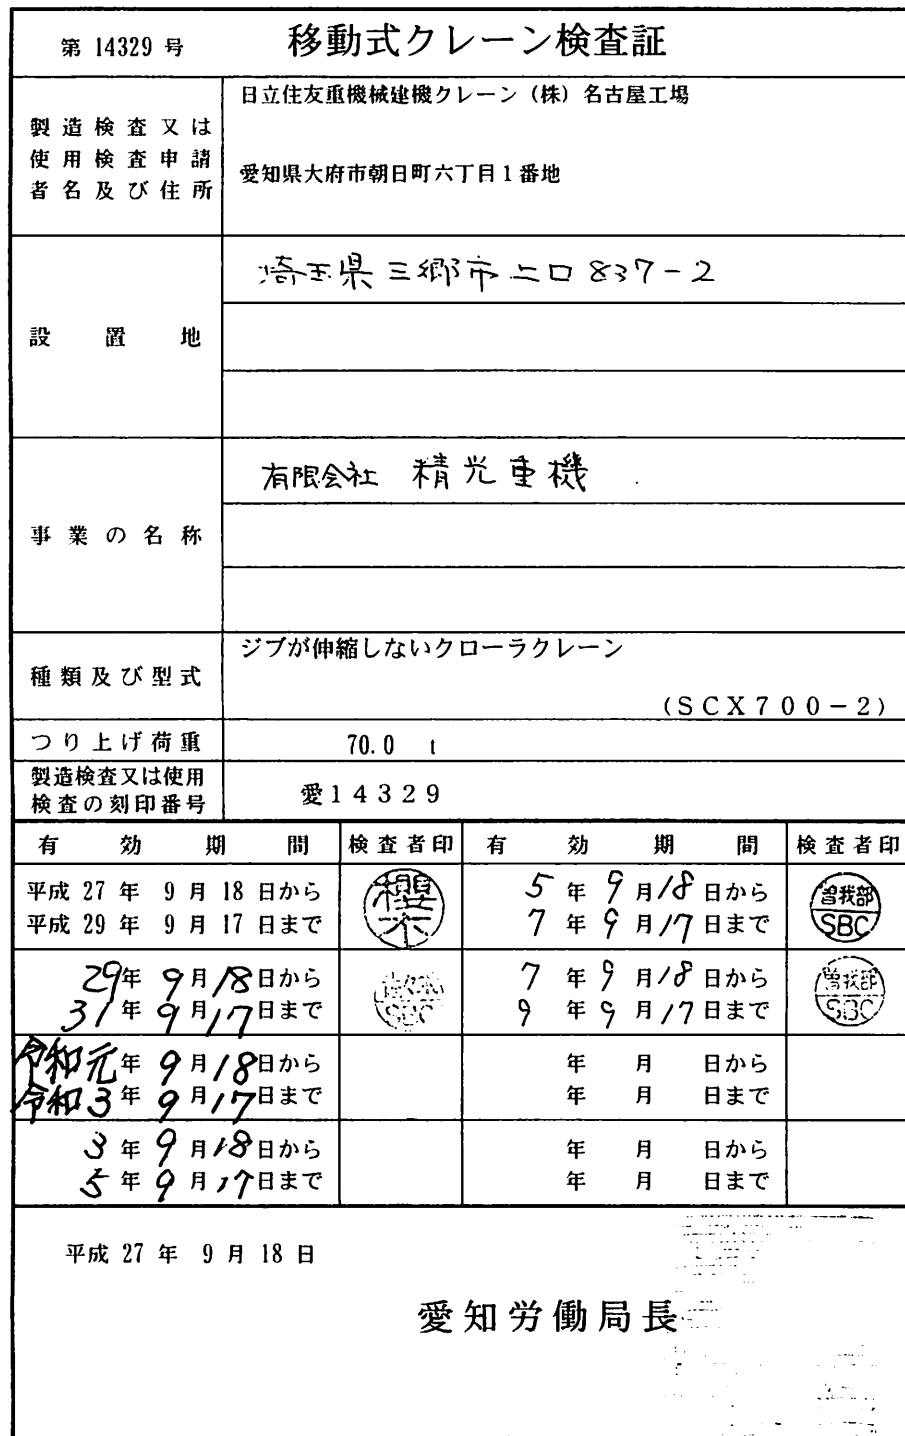 第 14329 号
移動式クレーン検査証
製造検査又は
使用検査申請
者名及び住所
日立住友重機械建機クレーン（株）名古屋工場
愛知県大府市朝日町六丁目1番地
設置地
埼玉県三郷市上口837-2
事業の名称
有限会社 精光重機
種類及び型式
ジブが伸縮しないクローラクレーン
（SCX700-2）
つり上げ荷重
70.0 t
製造検査又は使用
検査の刻印番号
愛14329
有効期間 検査者印 有効期間 検査者印
平成 27 年 9 月 18 日から
平成 29 年 9 月 17 日まで
櫻木
5 年 9 月 18 日から
7 年 9 月 17 日まで
曽我部
SBC
29年 9月18日から
31年 9月17日まで
SBC
7 年 9 月 18 日から
9 年 9 月 17 日まで
曽我部
SBC
令和元年 9月18日から
令和3年 9月17日まで
年 月 日から
年 月 日まで
3年 9月18日から
5年 9月17日まで
年 月 日から
年 月 日まで
平成 27 年 9 月 18 日
愛知労働局長